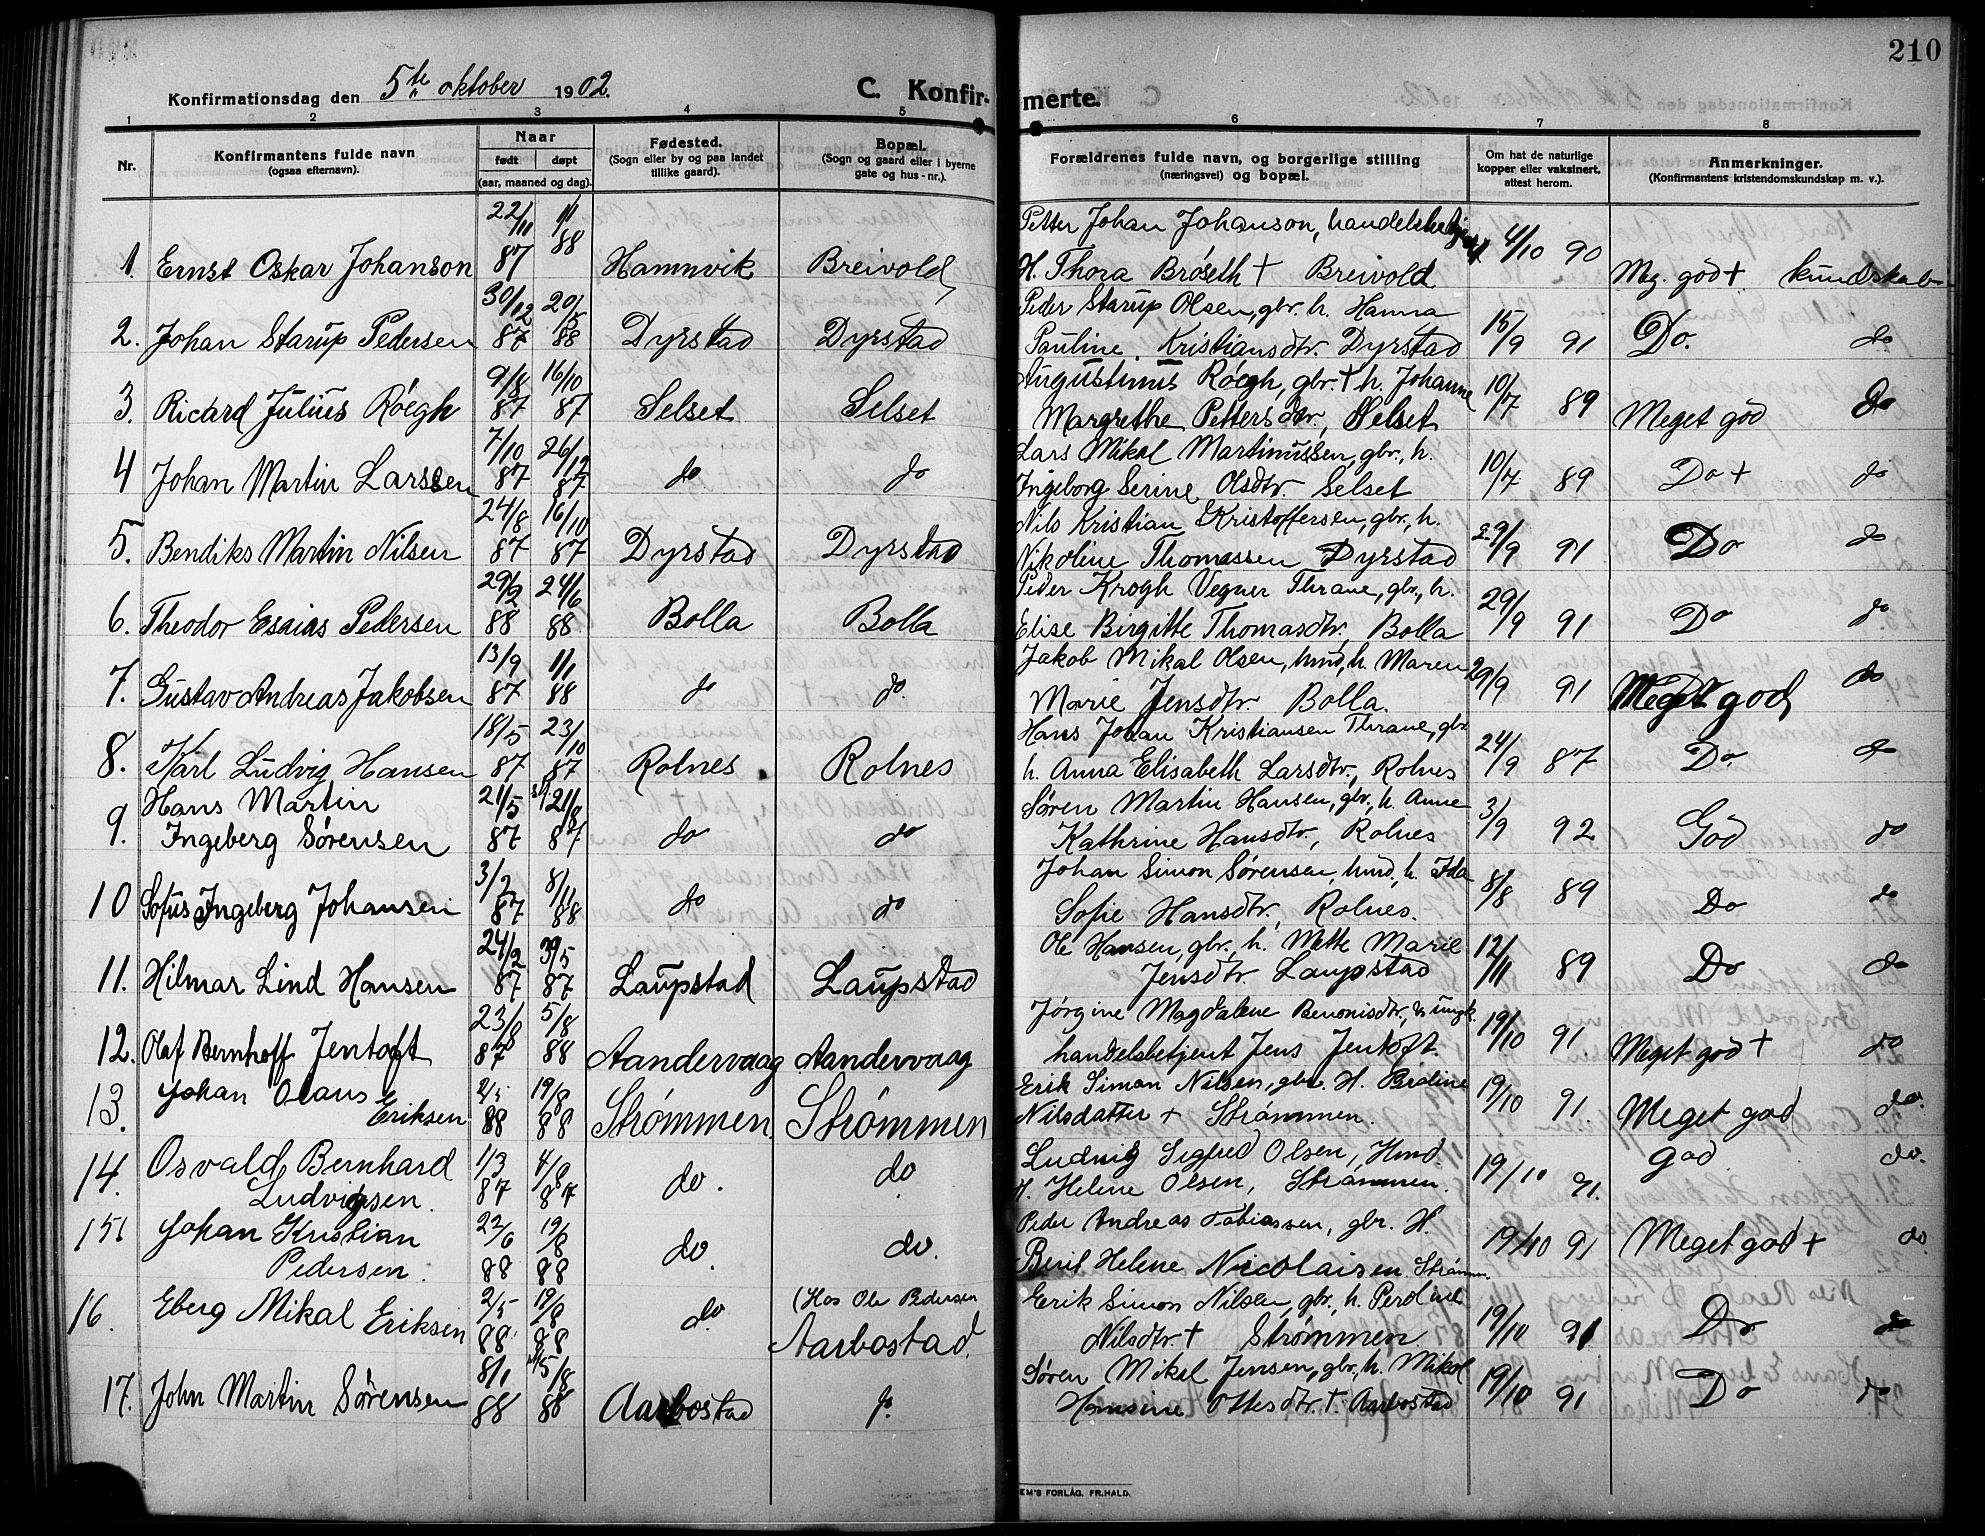 210
Konfirmationsdag den 5te oktober 1902.
C. Konfirmerte.
1 2 3 4 5 6 7 8
Nr.
Konfirmantens fulde navn
(ogsaa efternavn).
Naar
født døpt
(aar, maaned og dag).
Fødested.
(Sogn eller by og paa landet
tillike gaard).
Bopæl.
(Sogn og gaard eller i byerne
gate og hus-nr.).
Forældrenes fulde navn, og borgerlige stilling
(næringsvei) og bopæl.
Om hat de naturlige
kopper eller vaksinert,
attest herom.
Anmerkninger.
(Konfirmantens kristendomskundskap m. v.).
22/11 1/1 Petter Johan Johanson, handelsbetjent
1. Ernst Oskar Johanson 87 88 Hamnvik Breivold H. Thora Brøseth + Breivold 4/10 90 Meg. god + kundskab
30/12 20/5 Peder Starup Olsen, gbr. h. Hanna
2. Johan Starup Pedersen 87 88 Dyrstad Dyrstad Pauline Kristiansdtr. Dyrstad 15/9 91 Do. do
9/8 16/10 Augustinus Røegh, gbr. + h. Johanne
3. Ricard Julius Røegh 87 87 Selset Selset Margrethe Pettersdtr., Selset 10/7 89 Meget god do
7/10 26/12 Lars Mikal Martinussen, gbr., h.
4 Johan Martin Larssen 87 87 do. do Ingeborg Serine Olsdtr. Selset 10/7 89 Do + do
24/8 16/10 Nils Kristian Kristoffersen, gbr., h.
5. Bendiks Martin Nilsen 87 87 Dyrstad Dyrstad Nikoline Thomassen Dyrstad 29/9 91 Do do
29/2 24/6 Peder Krogh Vegner Thrane, gbr., h.
6. Theodor Esaias Pedersen 88 88 Bolla Bolla Elise Birgitte Thomasdtr. Bolla 29/9 91 Do do
13/9 1/1 Jakob Mikal Olsen, hmd, h. Maren
7. Gustav Andreas Jakobsen 87 88 do do. Marie Jensdtr. Bolla. 29/9 91 Meget god do
18/5 23/10 Hans Johan Kristiansen Thrane, gbr
8. Karl Ludvig Hansen 87 87 Rolnes. Rolnes h. Anna Elisabeth Larsdtr., Rolnes 24/9 87 Do. do
Hans Martin 21/5 21/8 Søren Martin Hansen, gbr., h. Anne
9. Ingeberg Sørensen 87 87 do do Kathrine Hansdtr., Rolnes 3/9 92 God do
3/2 8/11 Johan Simon Sørensen, hmd, h. Ida
10 Sofus Ingeberg Johansen 87 88 do do Sofie Hansdtr. Rolnes. 8/8 89 Do do
24/2 Ole Hansen, gbr., h. Mette Marie
11. Hilmar Lind Hansen 87 87 Laupstad Laupstad Jensdtr. Laupstad 12/11 89 Do do
5/8 Jørgine Magdalene Benonisdtr., ungk.
12. Olaf Bernhoff Jentoft 87 88 Aandervaag Aandervaag handelsbetjent Jens Jentoft. 19/10 91. Meget god + do
Johan Olaus 2/5 19/8 Erik Simon Nilsen, gbr. H.
13. Eriksen 88 88 Strømmen. Strømmen Nilsdatter + Strømmen. 19/10 91. Meget god do.
Osvald Bernhard 1/3 4/9 Ludvig Sigfred Olsen, Hmd.
14. Ludvigsen. 87 87 do. do H. Helene Olsen, Strømmen. 19/10 91. god. do.
Johan Kristian 22/6 19/8 Peder Andreas Tobiassen, gbr. H.
15 Pedersen. 88 88 do. do. Berit Helene Nicolaisen. Strømm. 19/10 91 Meget god + do
Eberg Mikal 2/5 19/8 (Hos Ole Pedersen Erik Simon Nilsen, gbr., h.
16. Eriksen 88 88 do. Aarbostad. Nilsdtr. + Strømmen. 19/10 91 Do do
8/1 5/8 Søren Mikal Jensen, gbr., h. Mikol
17. John Martin Sørensen 88 88 Aarbostad do. Hansine Ottesdtr. + Aarbostad 19/10 91 Do do
EM'S FORLAG, FR. HALD.